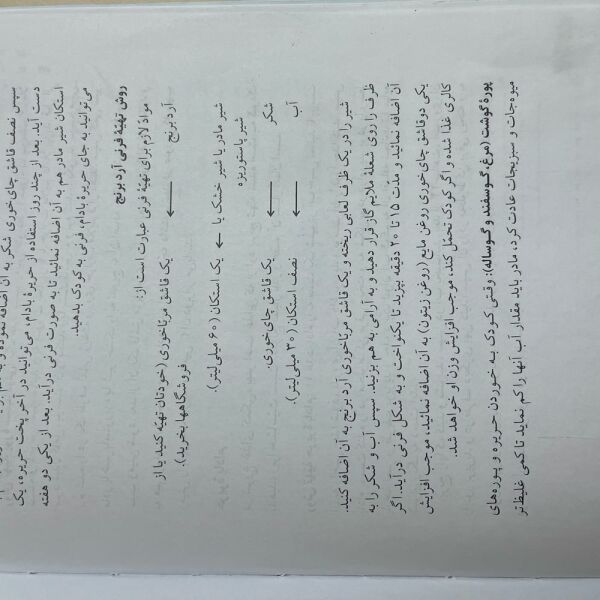 سپس نصف قاشق چای خوری شکر به آن اضافه نموده و به هم
دست آید. بعد از چند روز استفاده از حریرهٔ بادام، می‌توانید در آخر پخت حریره، یک
استکان شیر مادر هم به آن اضافه نمائید تا به صورت فرنی درآید. بعد از یکی دو هفته
می‌توانید به جای حریرهٔ بادام، فرنی به کودک بدهید.
روش تهیّهٔ فرنی آرد برنج
موادّ لازم برای تهیّهٔ فرنی عبارت است از:
آرد برنج ← یک قاشق مرباخوری (خودتان تهیّه کنید یا از
فروشگاهها بخرید).
شیر مادر یا شیر خشک یا ← یک استکان (۶۰ میلی‌لیتر).
شیر پاستوریزه
شکر ← یک قاشق چای‌خوری.
آب ← نصف استکان (۳۰ میلی‌لیتر).
شیر را در یک ظرف لعابی ریخته و یک قاشق مرباخوری آرد برنج به آن اضافه کنید.
ظرف را روی شعلهٔ ملایم گاز قرار دهید و به آرامی به هم بزنید. سپس آب و شکر را به
آن اضافه نمائید و مدّت ۱۵ تا ۲۰ دقیقه بپزید تا یکنواخت و به شکل فرنی درآید. اگر
یکی دو قاشق چای‌خوری روغن مایع (روغن زیتون) به آن اضافه نمائید، موجب افزایش
کالری غذا شده و اگر کودک تحمّل کند، موجب افزایش وزن او خواهد شد.
پورهٔ گوشت (مرغ، گوسفند و گوساله): وقتی کودک به خوردن حریره و پوره‌های
میوه‌جات و سبزیجات عادت کرد، مادر باید مقدار آب آنها را کم نماید تا کمی غلیظ‌تر